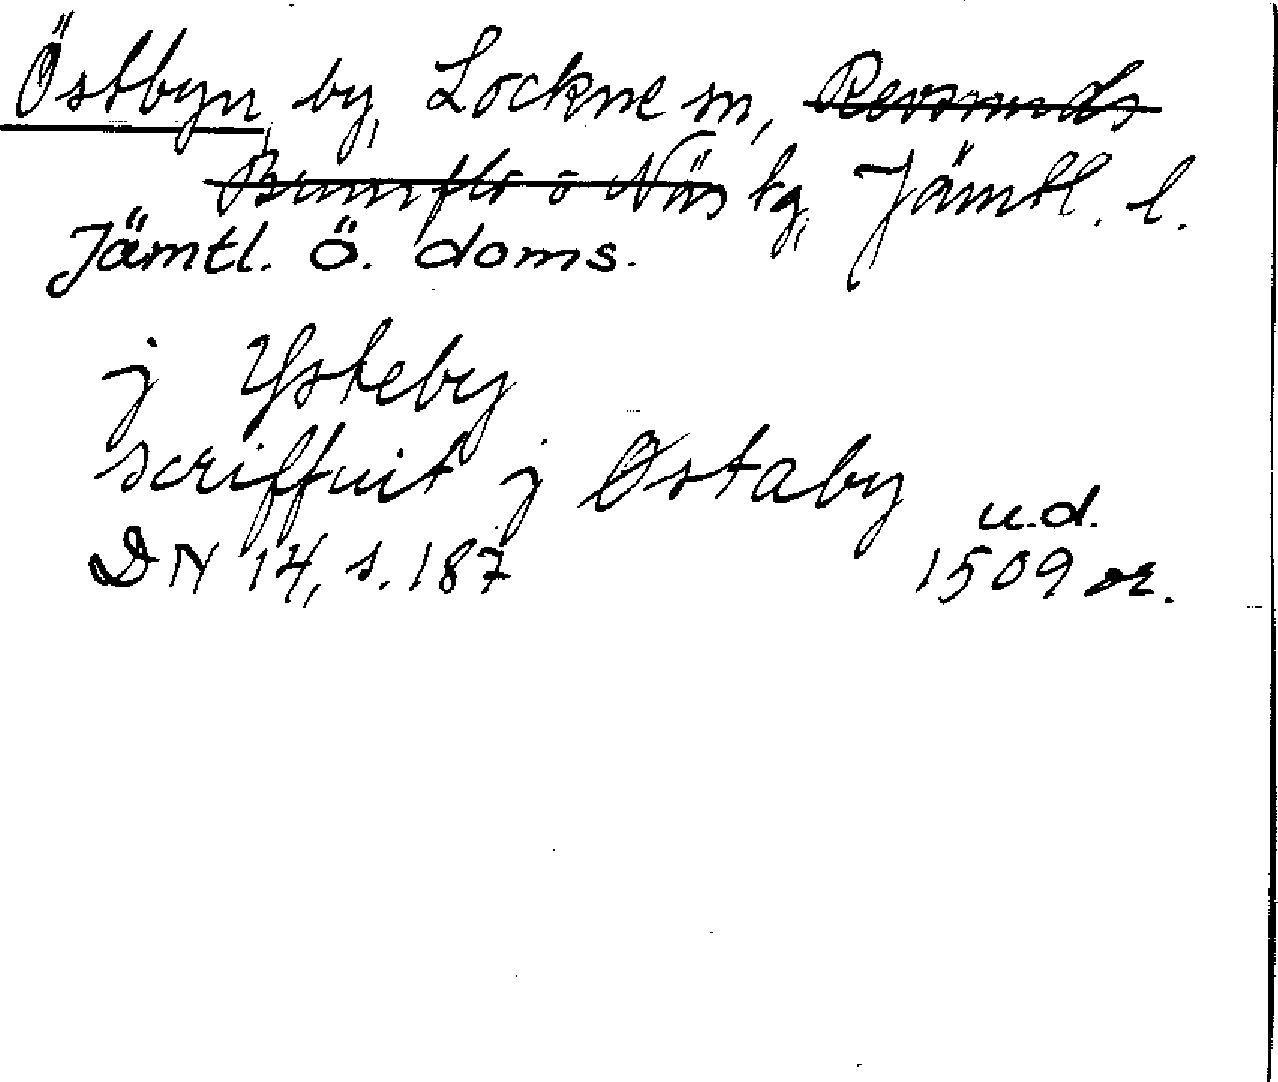 Östbyn, by, Lockne sn, Revsunds
Brunflo o Näs tg, Jämtl. l.
Jämtl. ö. doms.
j Ysteby
scriffuit j Østaby
u.d.
DN 14, s. 187 1509 or.